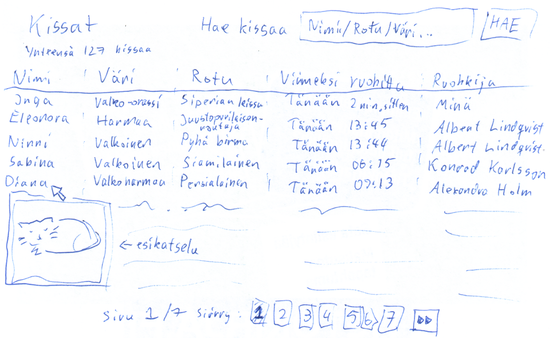 Kissat Hae kissaa Nimi/Rotu/Väri... HAE
Yhteensä 127 kissaa
Nimi Väri Rotu Viimeksi ruokittu Ruokkija
Inga Valko-oranssi Siperian kissa Tänään 2 min. sitten Minä
Eleonora Harmaa Tänään 13:45 Albert Lindqvist
Ninni Valkoinen Pyhä birma Tänään 13:44 Albert Lindqvist
Sabina Valkoinen Siamilainen Tänään 06:15 Konrad Karlsson
Diana Valkoharmaa Persialainen Tänään Alexandra Holm
← esikatselu
Sivu 1/7 siirry: 1 2 3 4 5 6 7